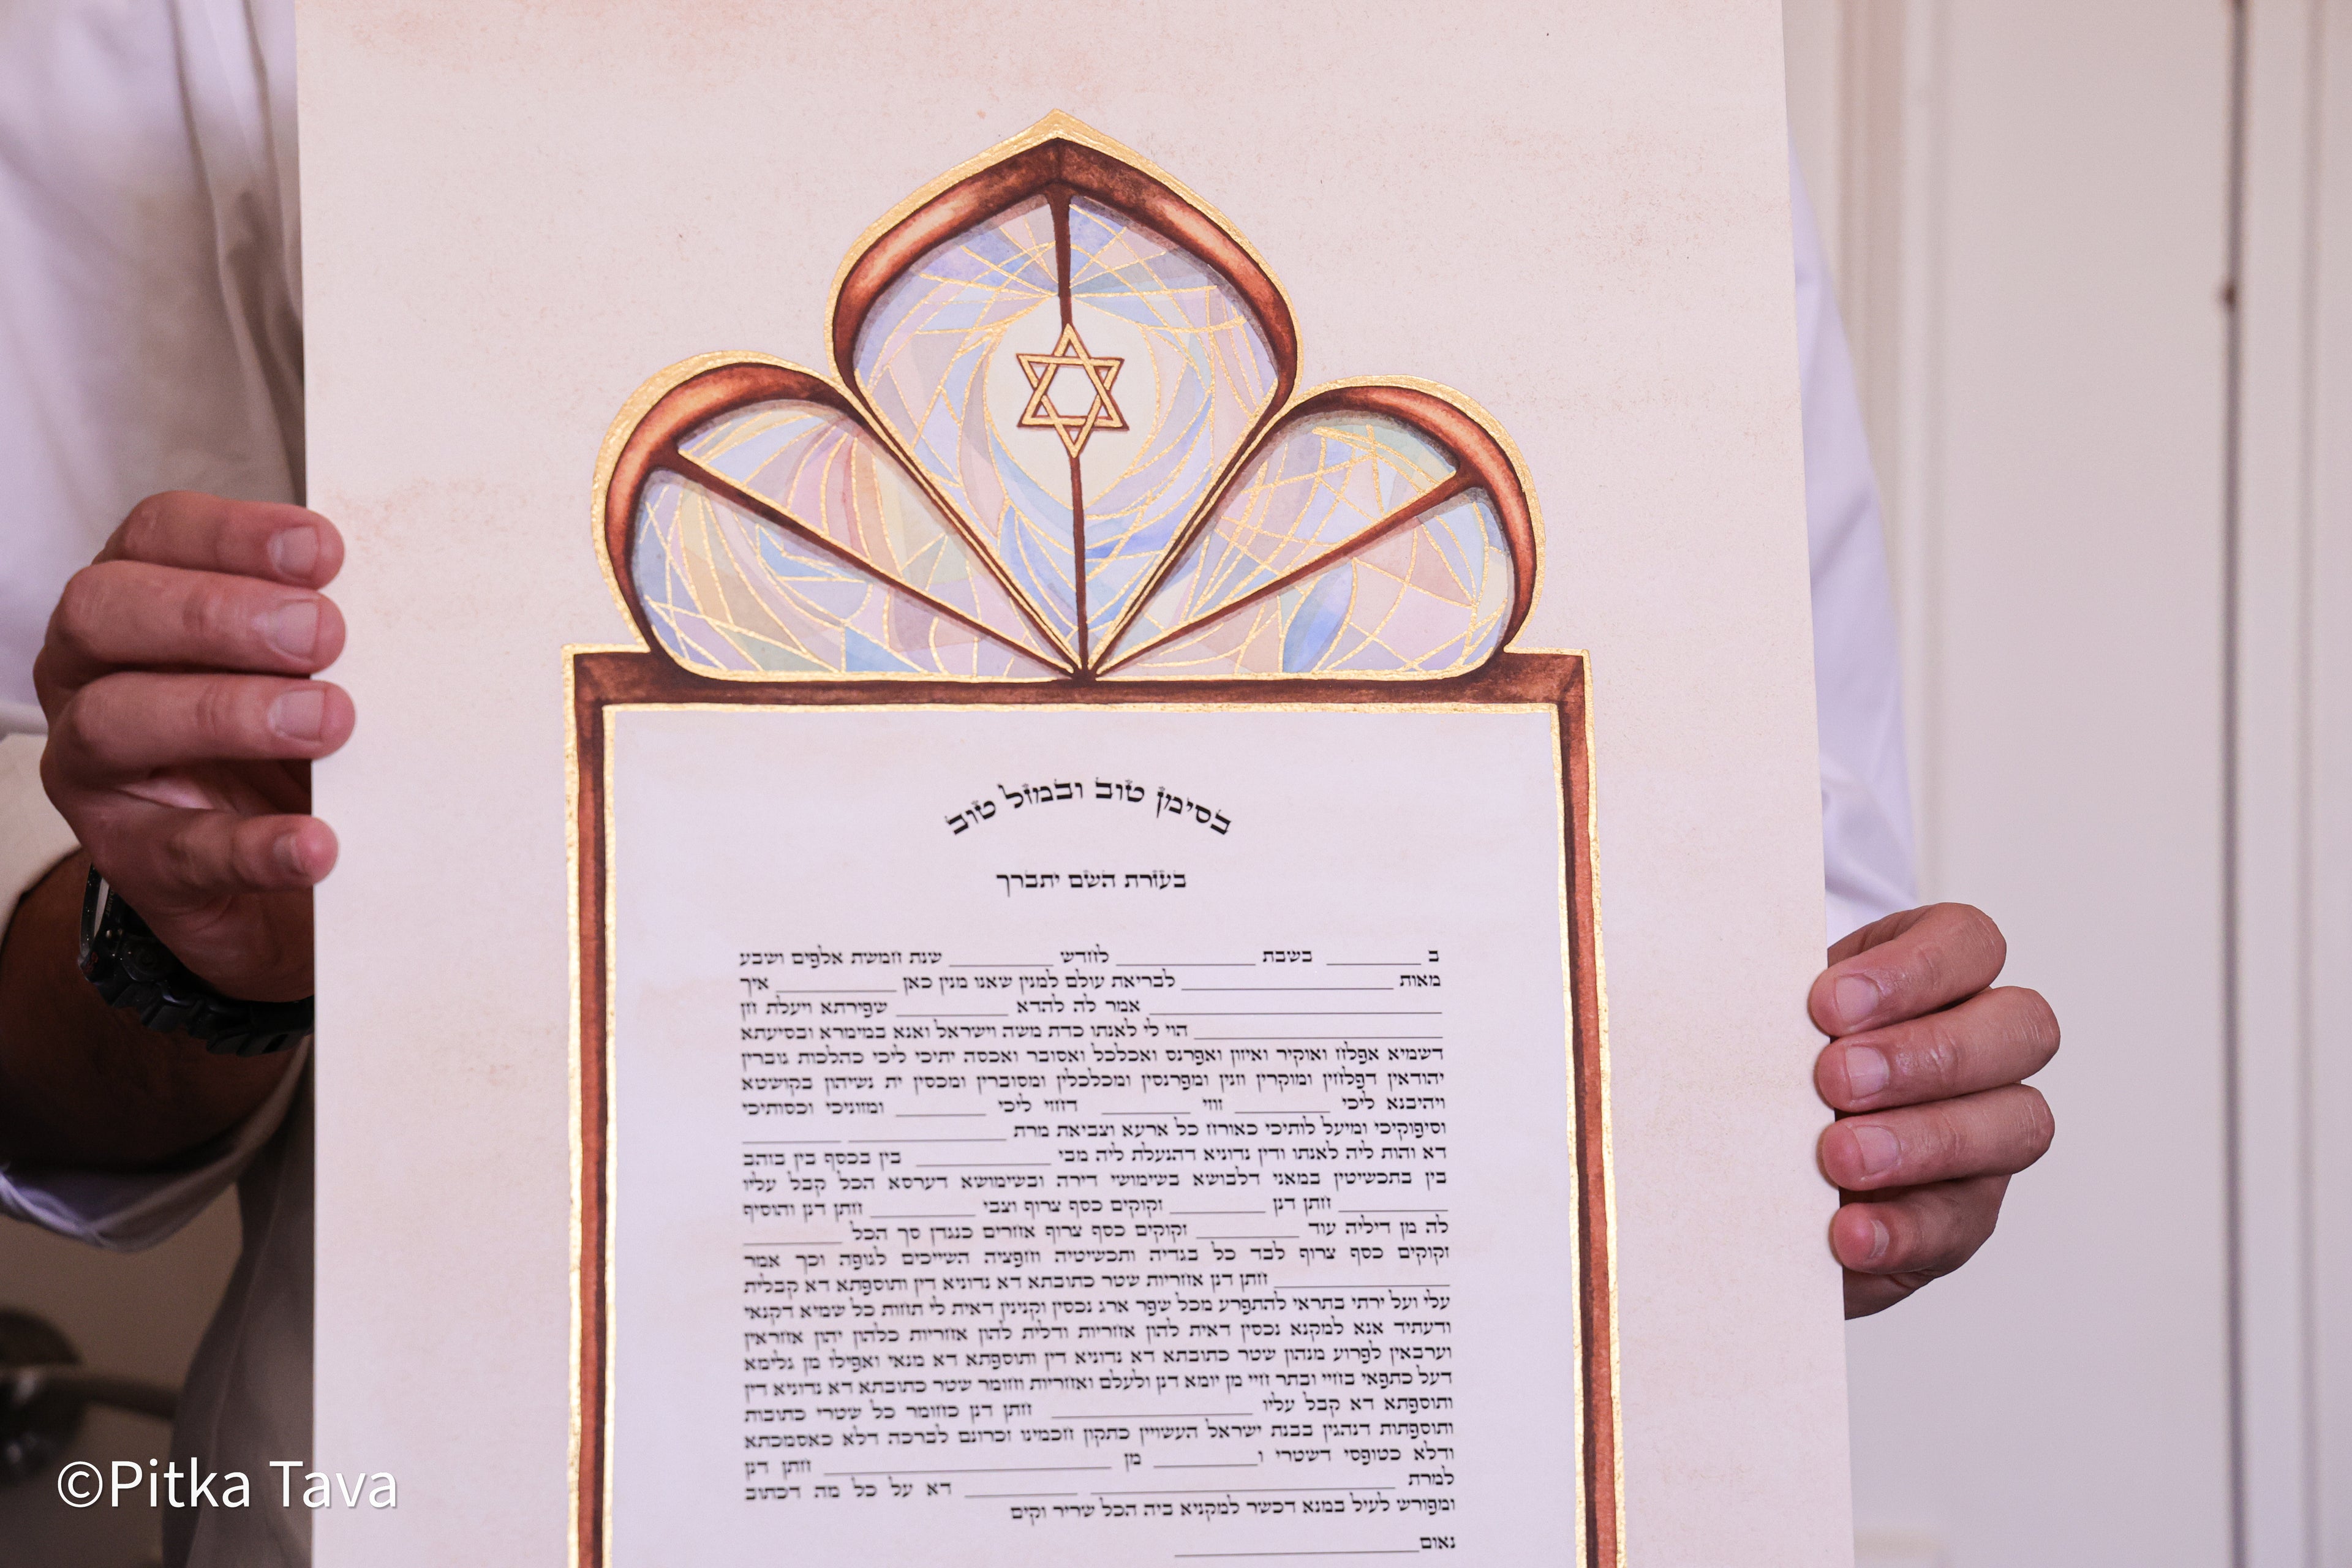 בסימן טוב ובמזל טוב
בעזרת השם יתברך
ב ________ בשבת ____________ לחדש _________ שנת חמשת אלפים ושבע
מאות __________________ לבריאת עולם למנין שאנו מנין כאן __________ איך
_________________________ אמר לה להדא __________ שפירתא ויעלת חן
_____________________ הוי לי לאנתו כדת משה וישראל ואנא במימרא ובסיעתא
דשמיא אפלח ואוקיר ואיזון ואפרנס ואכלכל ואסובר ואכסה יתיכי ליכי כהלכות גוברין
יהודאין דפלחין ומוקרין וזנין ומפרנסין ומכלכלין ומסוברין ומכסין ית נשיהון בקושטא
ויהיבנא ליכי ________ זוזי ________ דחזי ליכי ________ ומזוניכי וכסותיכי
וסיפוקיכי ומיעל לותיכי כאורח כל ארעא וצביאת מרת ______________ _________
דא והות ליה לאנתו ודין נדוניא דהנעלת ליה מבי ____________ בין בכסף בין בזהב
בין בתכשיטין במאני דלבושא בשימושי דירה ובשימושא דערסא הכל קבל עליו
__________ חתן דנן ________ זקוקים כסף צרוף וצבי _________ חתן דנן והוסיף
לה מן דיליה עוד _________ זקוקים כסף צרוף אחרים כנגדן סך הכל _________
זקוקים כסף צרוף לבד כל בגדיה ותכשיטיה וחפציה השייכים לגופה וכך אמר
________________ חתן דנן אחריות שטר כתובתא דא נדוניא דין ותוספתא דא קבלית
עלי ועל ירתי בתראי להתפרע מכל שפר ארג נכסין וקנינין דאית לי תחות כל שמיא דקנאי
ודעתיד אנא למקנא נכסין דאית להון אחריות ודלית להון אחריות כלהון יהון אחראין
וערבאין לפרוע מנהון שטר כתובתא דא נדוניא דין ותוספתא דא מנאי ואפילו מן גלימא
דעל כתפאי בחיי ובתר חיי מן יומא דנן ולעלם ואחריות וחומר שטר כתובתא דא נדוניא דין
ותוספתא דא קבל עליו __________________ חתן דנן כחומר כל שטרי כתובות
ותוספתות דנהגין בבנת ישראל העשויין כתקון חכמינו זכרונם לברכה דלא כאסמכתא
ודלא כטופסי דשטרי ו_________ מן __________________________ חתן דנן
למרת ___________________________ __________ דא על כל מה דכתוב
ומפורש לעיל במנא דכשר למקניא ביה הכל שריר וקים
נאום______________________
©Pitka Tava